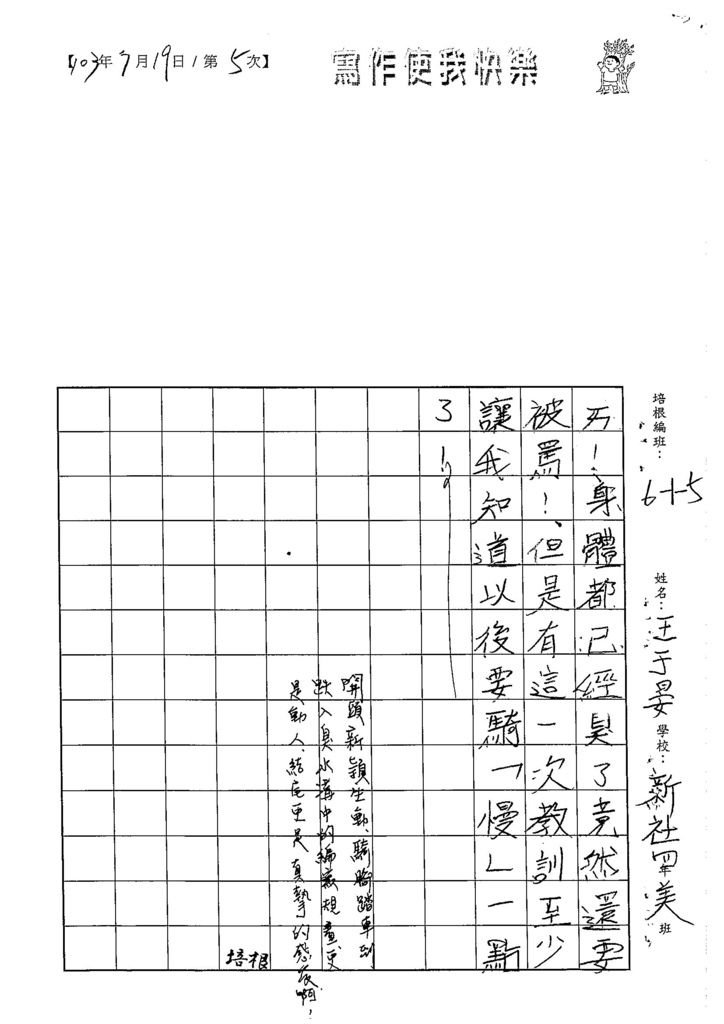 【403年7月19日/第5次】
寫作使我快樂
培根編班：
6-1-5
姓名：
王于晏
學校：
新社
四年
美
班
！身體都已經臭了竟然還要
被罵！但是有這一次教訓至少
讓我知道以後要騎「慢」一點
了！
開頭新穎生動、騎腳踏車到
跌入臭水溝中的編裁規畫更
是動人、結尾更是真摯的感啊！
培根